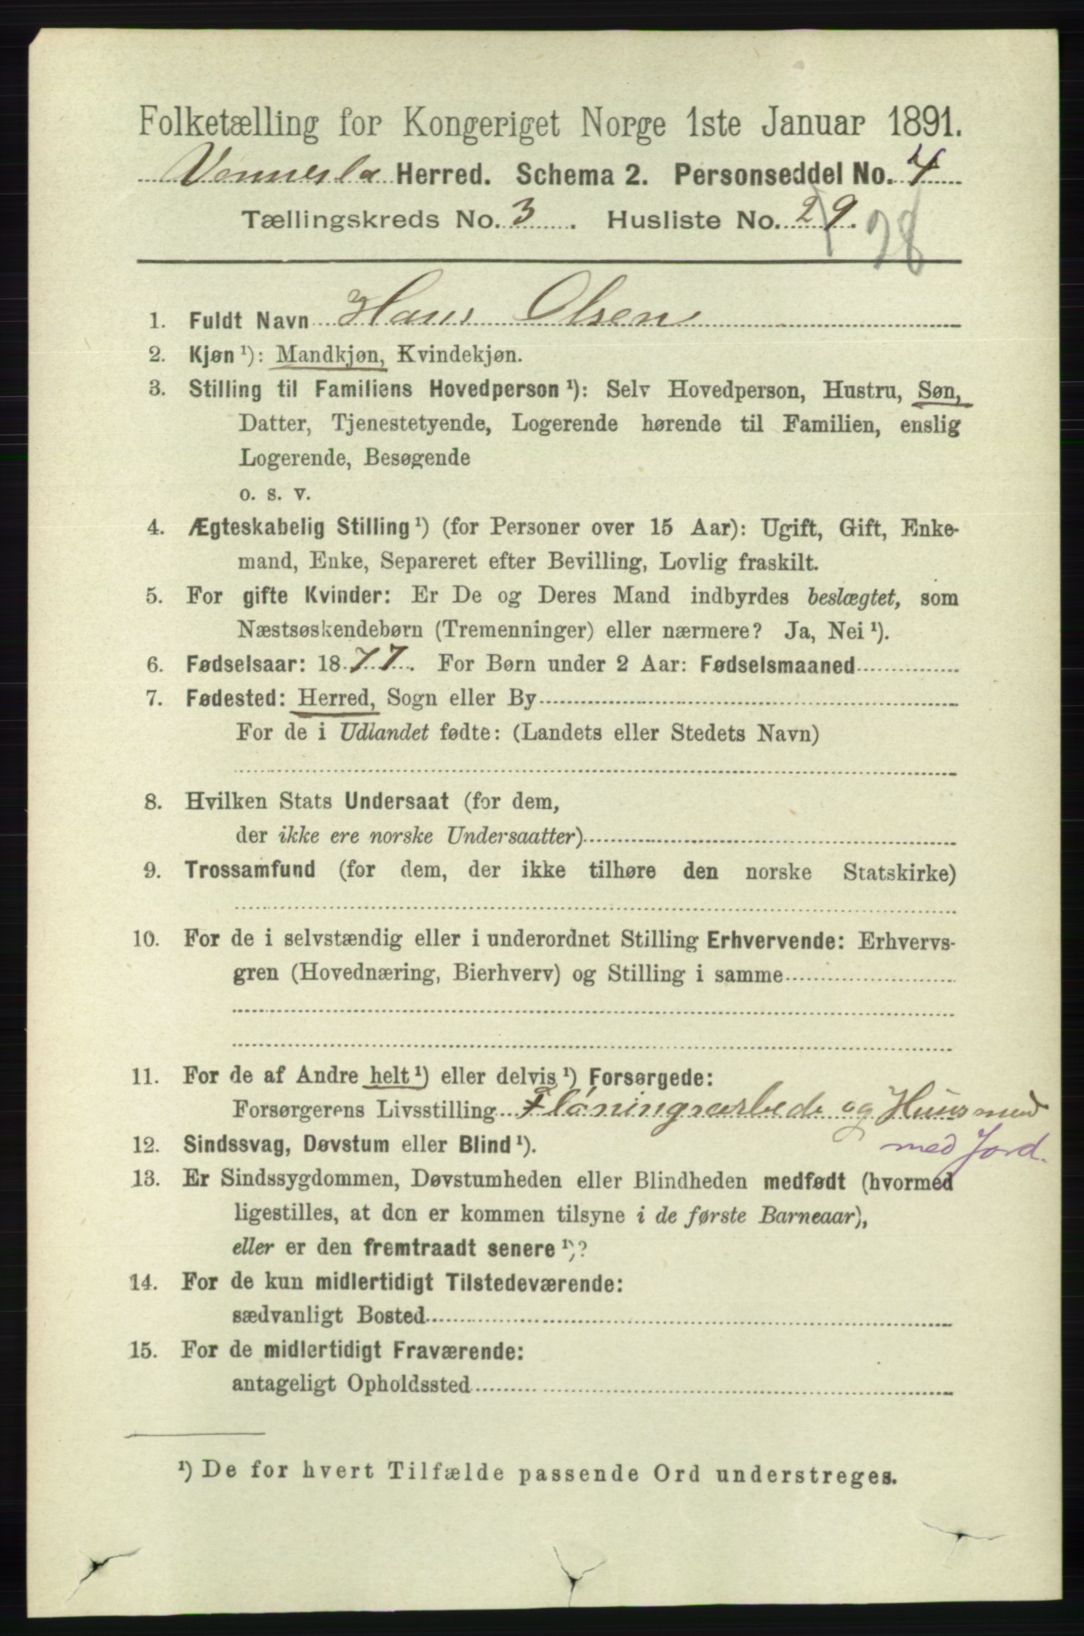 Folketælling for Kongeriget Norge 1ste Januar 1891.
Vennesla Herred. Schema 2. Personseddel No. 4
Tællingskreds No. 3. Husliste No. 29. 28
1. Fuldt Navn Hans Olsen
2. Kjøn ¹): Mandkjøn, Kvindekjøn.
3. Stilling til Familiens Hovedperson ¹): Selv Hovedperson, Hustru, Søn,
Datter, Tjenestetyende, Logerende hørende til Familien, enslig
Logerende, Besøgende
o. s. v.
4. Ægteskabelig Stilling ¹) (for Personer over 15 Aar): Ugift, Gift, Enke-
mand, Enke, Separeret efter Bevilling, Lovlig fraskilt.
5. For gifte Kvinder: Er De og Deres Mand indbyrdes beslægtet, som
Næstsøskendebørn (Tremenninger) eller nærmere? Ja, Nei ¹).
6. Fødselsaar: 1877. For Børn under 2 Aar: Fødselsmaaned
7. Fødested: Herred, Sogn eller By
For de i Udlandet fødte: (Landets eller Stedets Navn)
8. Hvilken Stats Undersaat (for dem,
der ikke ere norske Undersaatter)
9. Trossamfund (for dem, der ikke tilhøre den norske Statskirke)
10. For de i selvstændig eller i underordnet Stilling Erhvervende: Erhvervs-
gren (Hovednæring, Bierhverv) og Stilling i samme
11. For de af Andre helt ¹) eller delvis ¹) Forsørgede:
Forsørgerens Livsstilling Fløningsarbede og Huusmed
med Jord.
12. Sindssvag, Døvstum eller Blind ¹).
13. Er Sindssygdommen, Døvstumheden eller Blindheden medfødt (hvormed
ligestilles, at den er kommen tilsyne i de første Barneaar),
eller er den fremtraadt senere ¹)?
14. For de kun midlertidigt Tilstedeværende:
sædvanligt Bosted
15. For de midlertidigt Fraværende:
antageligt Opholdssted
¹) De for hvert Tilfælde passende Ord understreges.